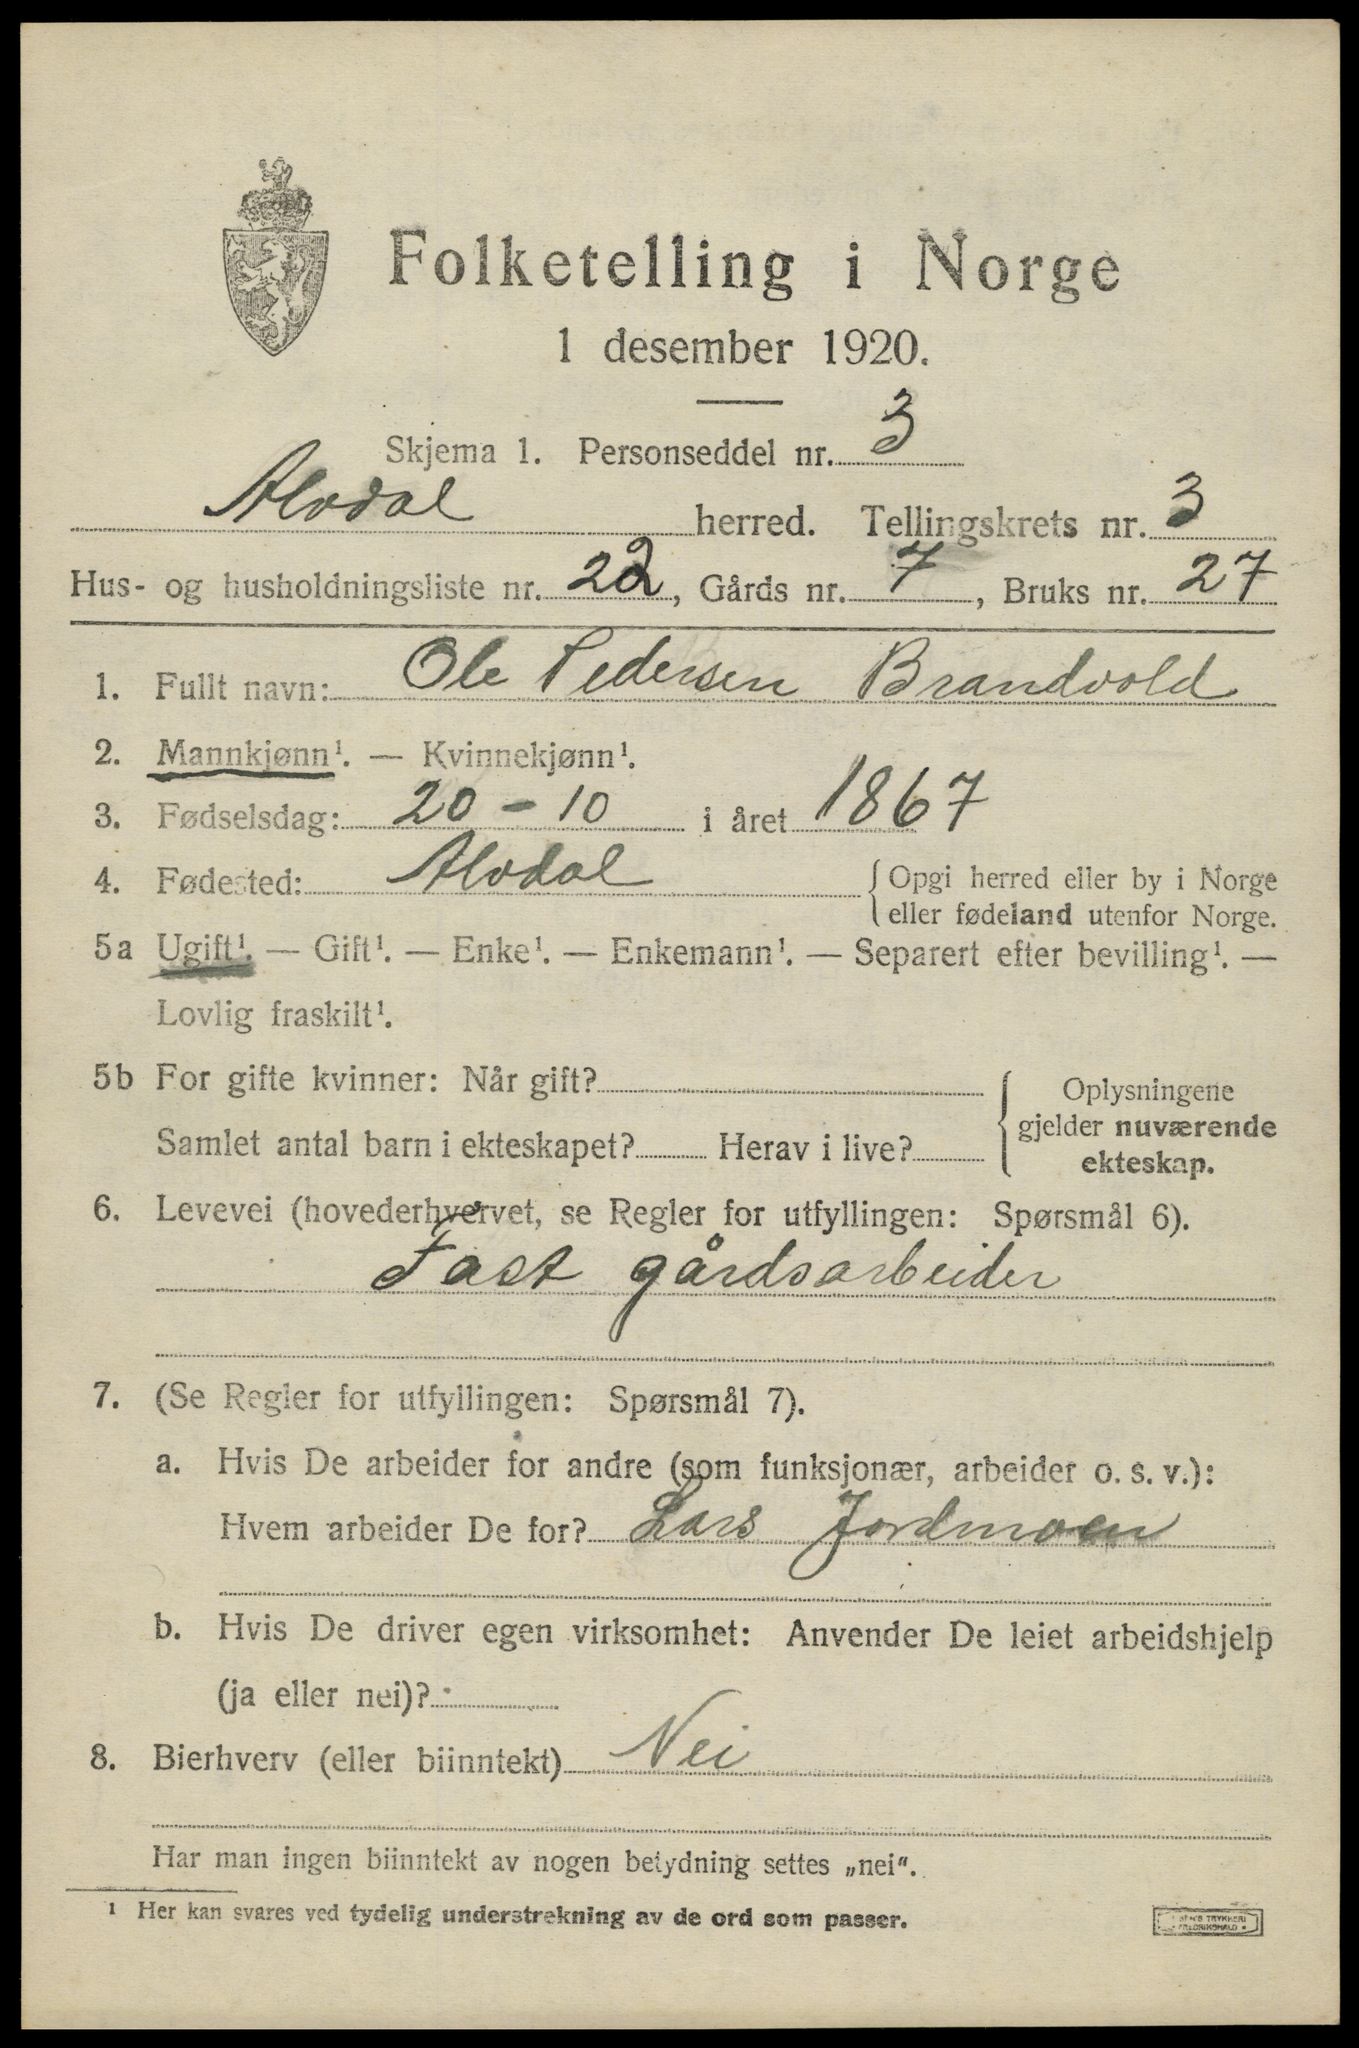 Folketelling i Norge
1 desember 1920.
Skjema 1. Personseddel nr. 3
Alvdal herred. Tellingskrets nr. 3
Hus- og husholdningsliste nr. 22, Gårds nr. 7, Bruks nr. 27
1. Fullt navn: Ole Pedersen Brandvold
2. Mannkjønn¹. — Kvinnekjønn¹.
3. Fødselsdag: 20 - 10 i året 1867
4. Fødested: Alvdal { Opgi herred eller by i Norge
eller fødeland utenfor Norge.
5a Ugift¹. — Gift¹. — Enke¹. — Enkemann¹. — Separert efter bevilling¹. —
Lovlig fraskilt¹.
5b For gifte kvinner: Når gift?
Samlet antal barn i ekteskapet? Herav i live?
{ Oplysningene
gjelder nuværende
ekteskap.
6. Levevei (hovederhvervet, se Regler for utfyllingen: Spørsmål 6).
Fast gårdsarbeider
7. (Se Regler for utfyllingen: Spørsmål 7).
a. Hvis De arbeider for andre (som funksjonær, arbeider o. s. v.):
Hvem arbeider De for? Lars Jordmoen
b. Hvis De driver egen virksomhet: Anvender De leiet arbeidshjelp
(ja eller nei)?
8. Bierhverv (eller biinntekt) Nei
Har man ingen biinntekt av nogen betydning settes „nei".
¹ Her kan svares ved tydelig understrekning av de ord som passer.
TRYKKERI
FREDRIKSHALD